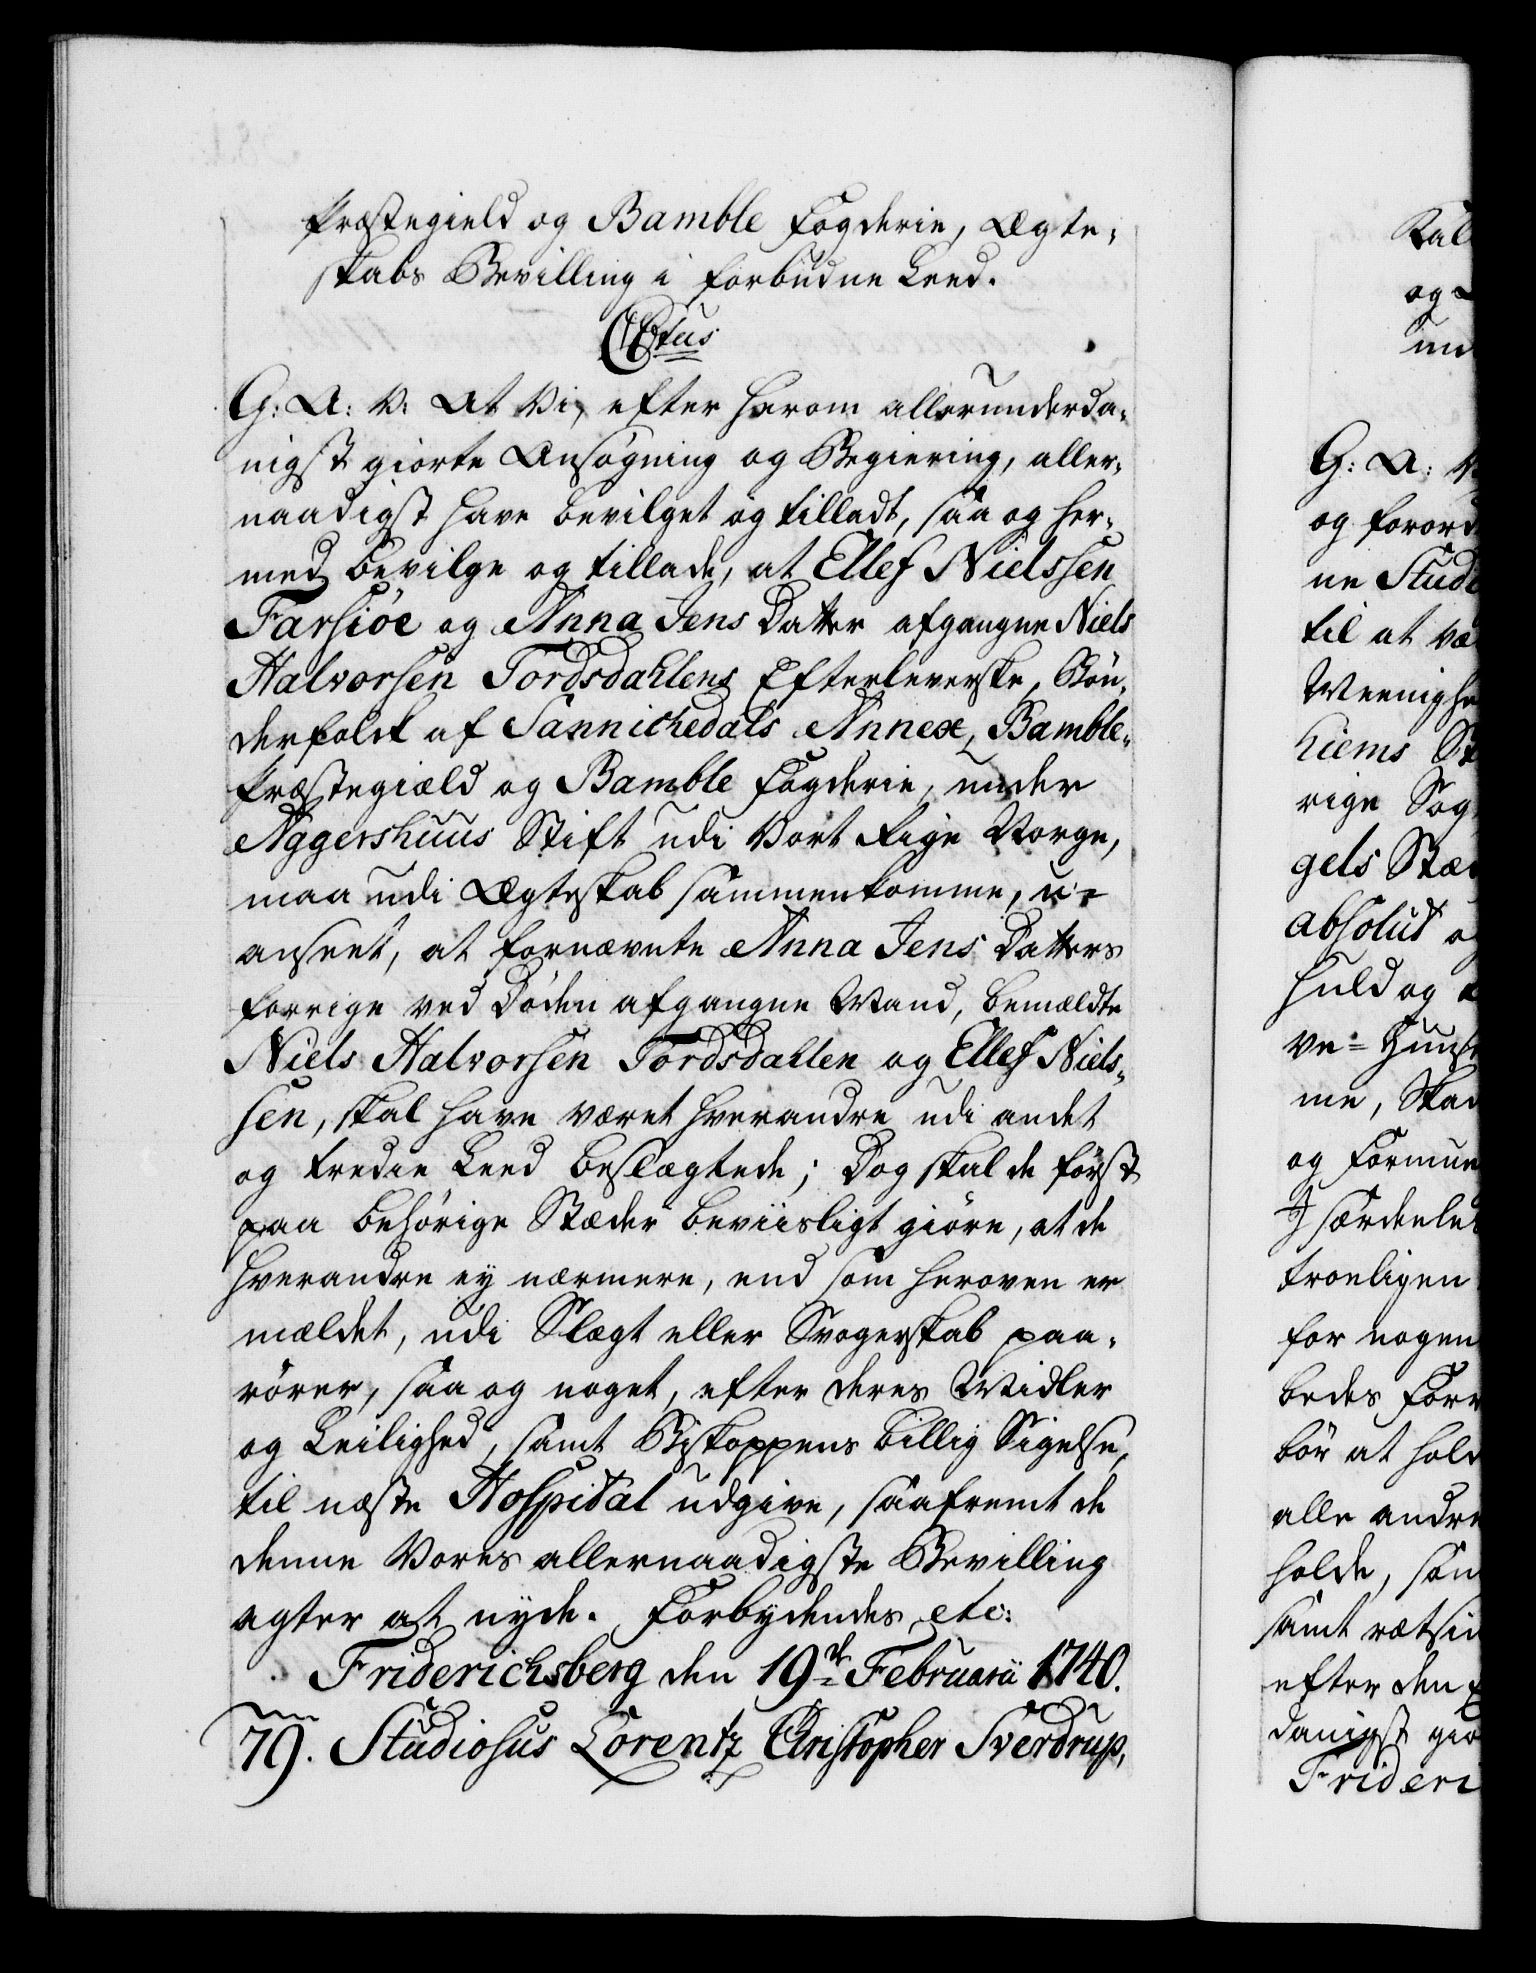 Præstegield og Bamble Fogderie, Ægte-
skabs Bevilling i forbudne Leed.
C6tus
G: A: V: At Vi, efter herom allerunderda-
nigst giorte Ansøgning og Begiering, aller-
naadigst have bevilget og tilladt, saa og her-
med bevilge og tillade, at Ellef Nielssen
Farsiöe og Anna Jens Datter afgangne Niels
Halvorsen Tordsdahlens Efterleverske, Bön-
derfolck af Sannichedals Annex, Bamble-
Præstegiæld og Bamble Fogderie, under
Aggershuus Stift udi Vort Rige Norge,
maa udi Ægteskab sammenkomme, u-
anseet, at fornævnte Anna Jens Datters
forrige ved Döden afgangne Mand, bemældte
Niels Halvorsen Tordsdahlen og Ellef Niels-
sen, skal have været hverandre udi andet
og tredie Leed beslægtede; Dog skal de först
paa behörige Stæder beviisligt giöre, at de
hverandre ey nærmere, end som heroven er
mældet, udi Slægt eller Svogerskab paa-
rörer, saa og noget, efter deres Midler
og Leilighed, samt Biskoppens billig Sigelse,
til næste Hospital udgive, saafremt de
denne Vores allernaadigste Bevilling
agter at nyde. Forbydendes etc:
Friderichsberg den 19de Februarii 1740.
79. Studiosus Lorentz Christopher Sverdrup,
Kal
og
un
G: A: V
og forord
ne Stud
til at væ
Meenighe
hiems St
rige Sog
gels Stæ
absolut o
huld og
ve- Huus
me, Skad
og Formue
J særdeeles
troeligen
for nogen
bedes For
bör at hold
alle andre
holde, som
samt retsin
efter den
danigst gio
Frideri